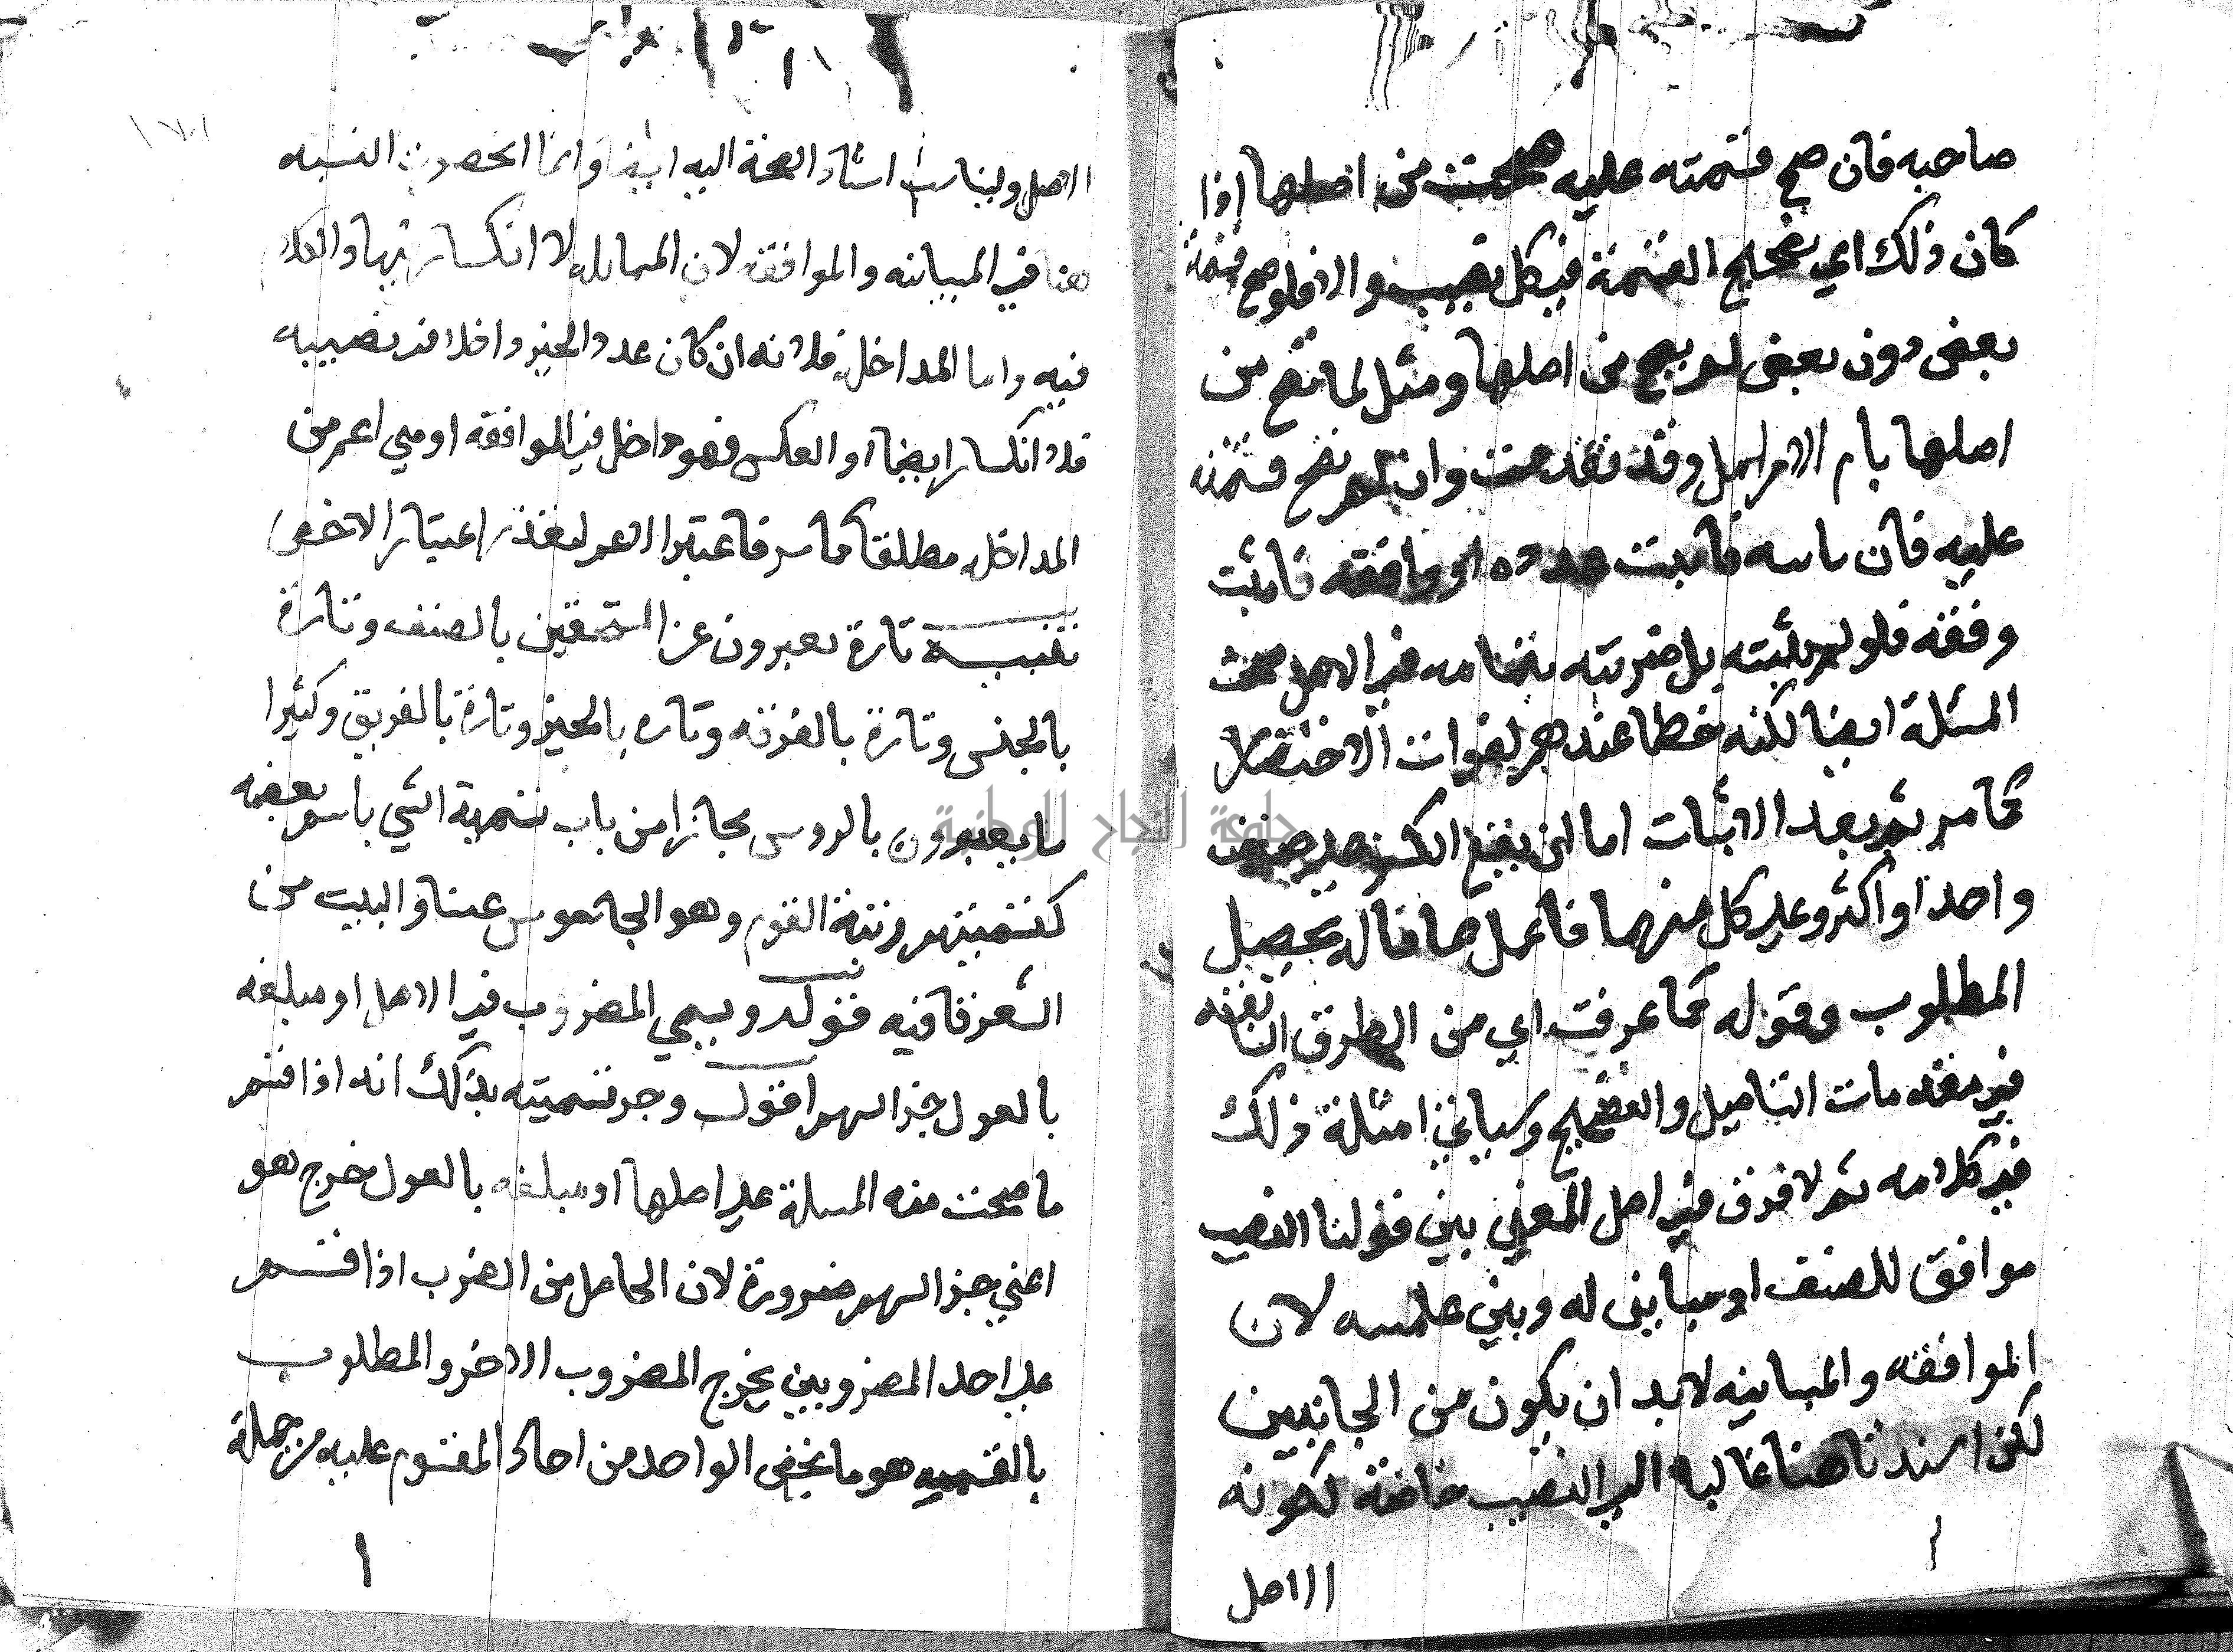 صاحبه فان صح قسمته عليه صحت من اصلها إذا
كان ذلك اي تصحيح القسمة في كل نصيب والا فلو صح قسمة
بعض دون بعض لم يصح من اصلها ومثل لما تصح من
اصلها بأم الارامل وقد تقدمت وان لم تصح قسمته
عليه فان باينه فاثبت عدده او وافقه فاثبت
وفقه فلو لم يثبته بل ضربته بتمامه في الاصل صحت
المسئلة ايضا لكنه خطا عندهم لفوات الاختصار
كما مر ثم بعد الاثبات اما ان يقع الكسر علي صنف
واحد او اكثر وعلي كل منهما فاعمل بما قال يحصل
المطلوب وقوله كما عرفت اي من الطرق السابقة
في مقدمات التاصيل والتصحيح وسياتي امثلة ذلك
في كلامه ثم لا فرق في اصل المعني بين قولنا النصيب
موافق للصنف او مباين له وبين عكسه لان
الموافقه والمباينه لا بد ان يكون من الجانبين
لكن اسندناها هنا غالبا الي النصيب خاصة لكونه
الاصل
الاصل وليناسب اسناد الصحة اليه ايضا وانما انحصرت النسبه
هنا في المباينه والموافقه لان المماثله لا انكسار فيها والعدد
فيه واما المداخله فلانه ان كان عدد الحيز داخلا في نصيبه
فلا انكسار ايضا او العكس فهو داخل في الموافقه او هي اعم من
المداخله مطلقا كما مر فاعتبرا الاعم لتعذر اعتبار الاخص
تنبيه تارة يعبرون عن المستحقين بالصنف وتارة
بالجنس وتارة بالفرقه وتاره بالحيز وتارة بالفريق وكثيرا
ما يعبرون بالروس مجازا من باب تسمية الشي باسم بعضه
كتسميتهم ربيئة القوم وهو الجاسوس عينا والبيت من
الشعر قافيه قوله ويسمي المضروب في الاصل او مبلغه
بالعول جزا لسهم اقول وجه تسميته بذلك انه اذا قسم
ما صحت منه المسلة علي اصلها او مبلغه بالعول خرج هو
اعني جز السهم ضرورة لان الحاصل من الضرب اذا قسم
علي احد المضروبين يخرج المضروب الاخر والمطلوب
بالقسمه هو ما يخص الواحد من احاد المقسوم عليه من جملة